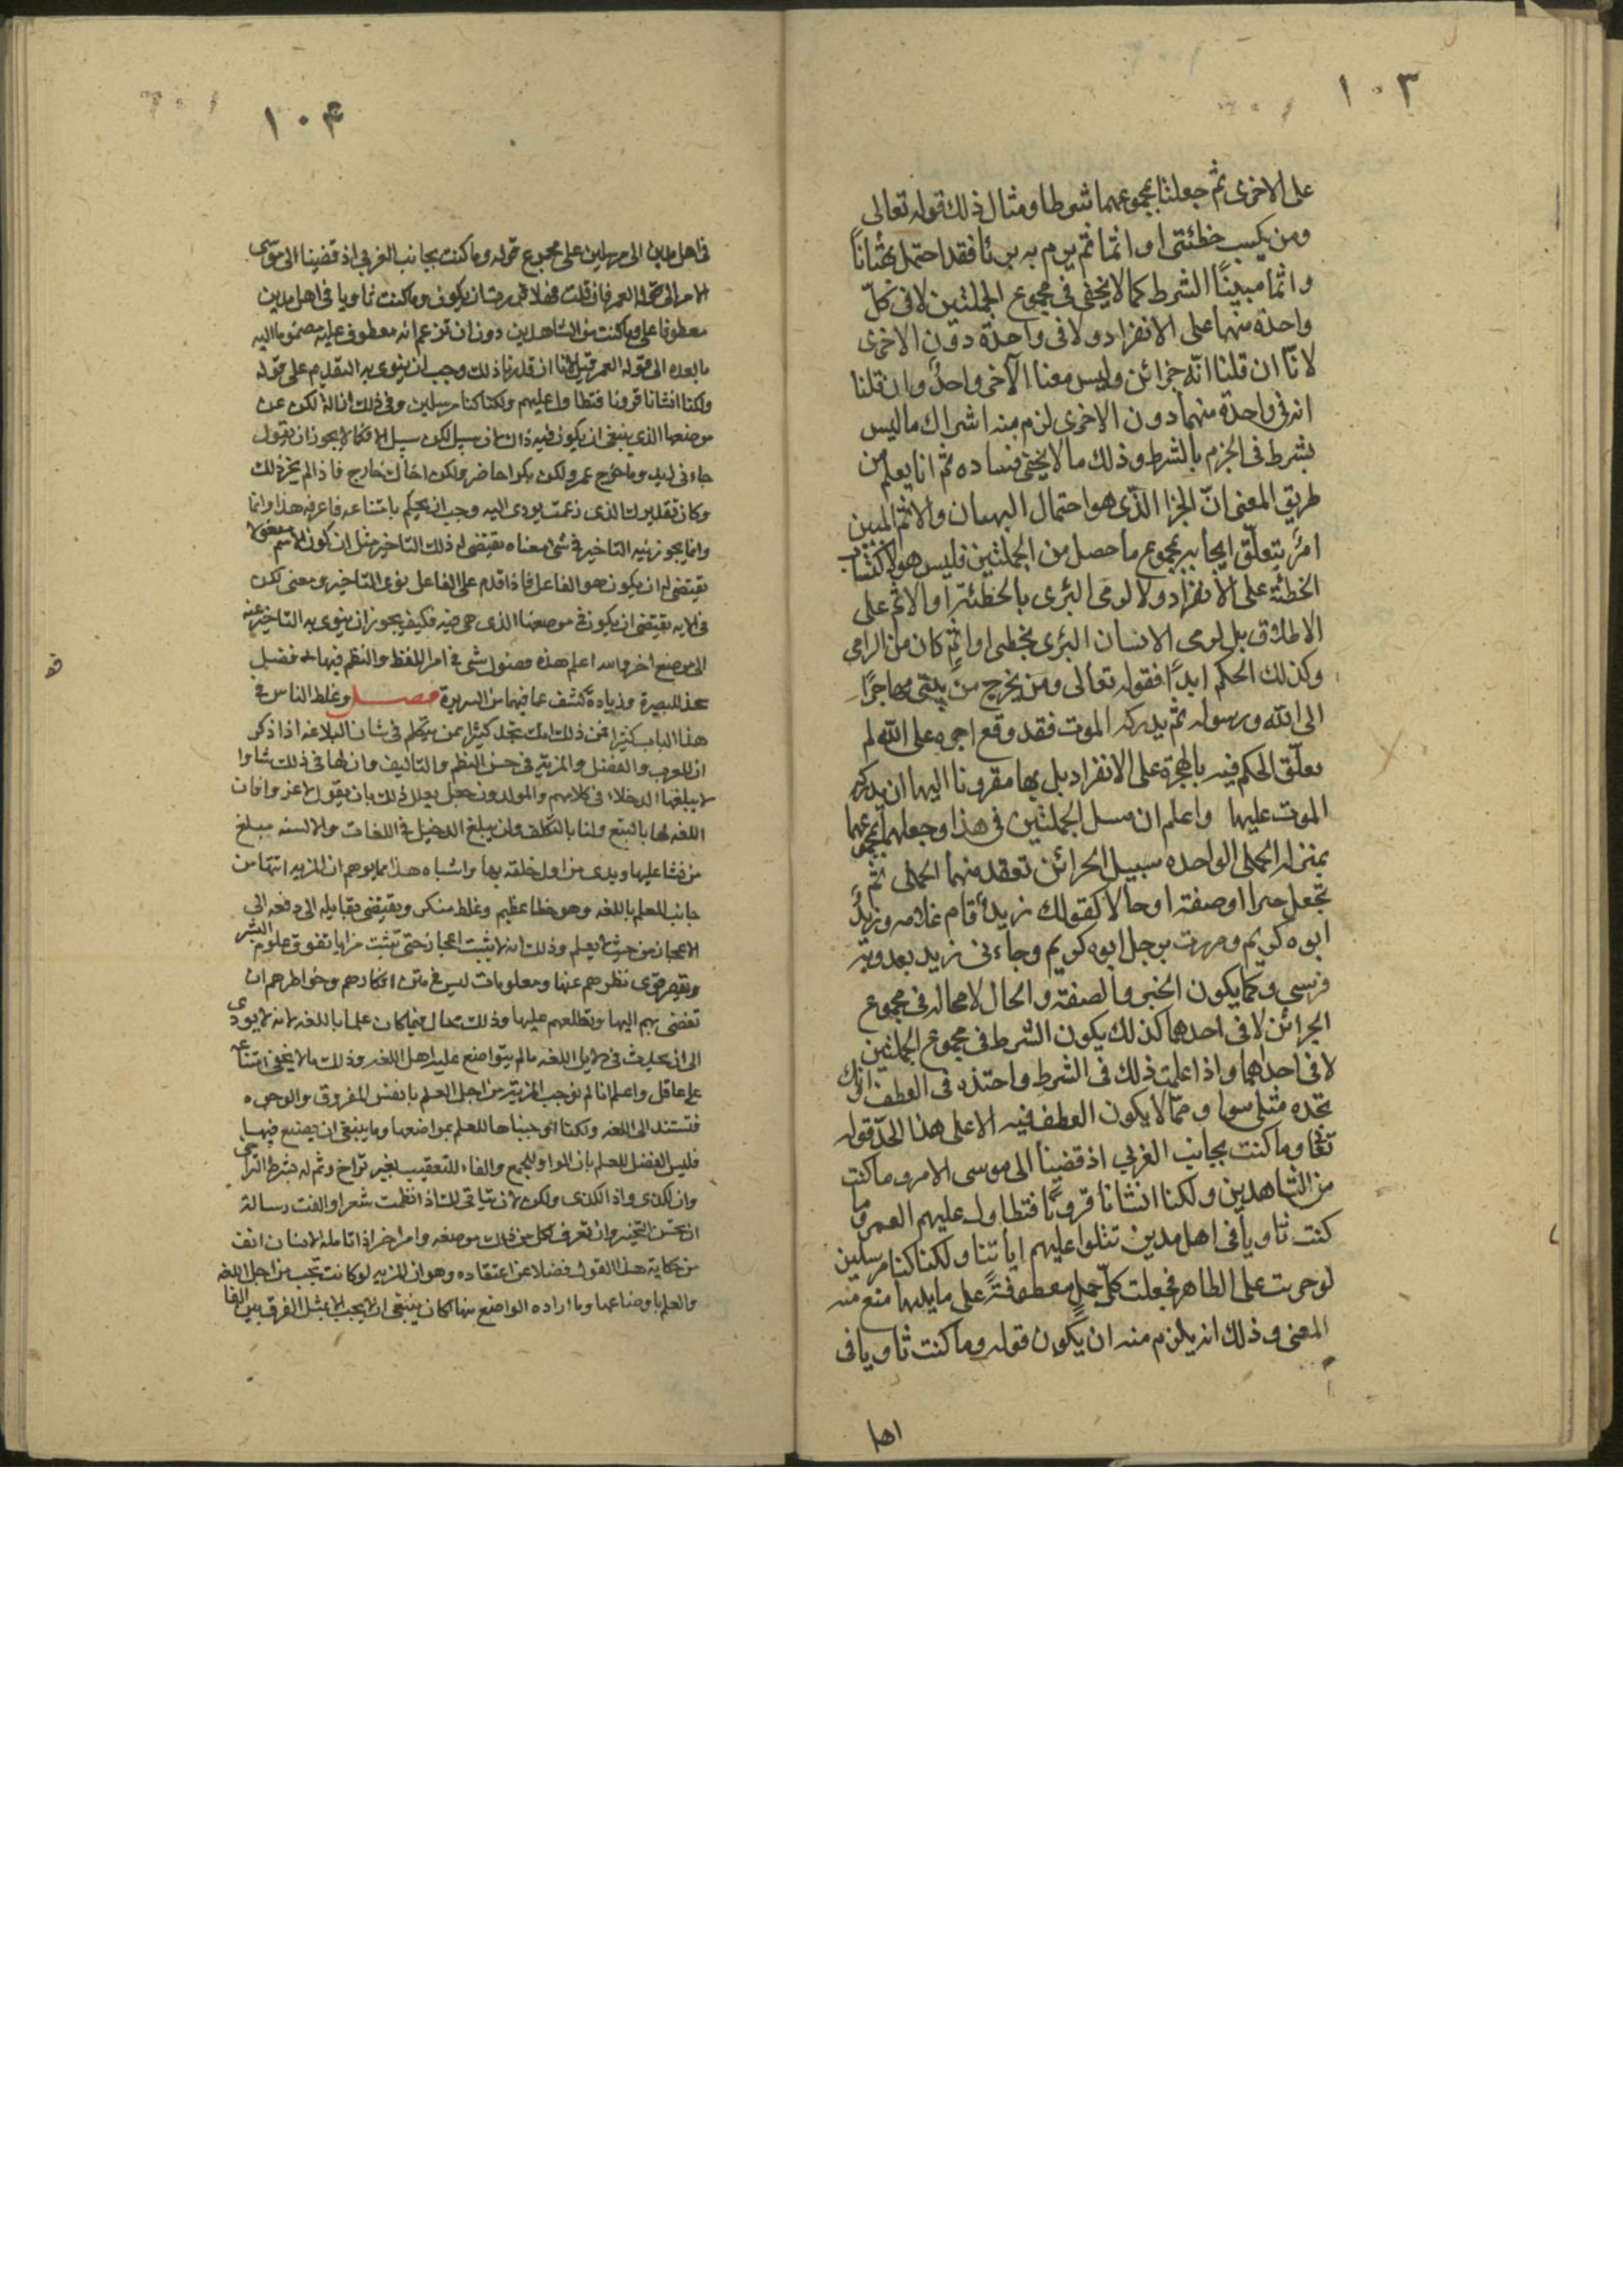 ١٠٣
على الاخرى ثم جعلنا مجموعهما شرطا ومثال ذلك قوله تعالى
ومن يكسب خطئتى او اثما ثم يرم به بريئا فقد احتمل بهتانا
واثما مبينا الشرط كما لا يخفى فى مجموع الجملتين لا فى كل
واحدة منهما على الانفراد ولا فى واحدة دون الاخرى
لانا ان قلنا انه جزائن وليس معنا الآخر واحد وان قلنا
انه فى واحدة منهما دون الاخرى لزم منه اشراك ما ليس
بشرط فى الجزم بالشرط وذلك ما لا يخفى فساده ثم انا نعلم من
طريق المعنى ان الجزا الذى هو احتمال البهتان والاثم المبين
امر يتعلق ايجابه بمجموع ما حصل من الجملتين فليس هو لاكتساب
الخطئة على الانفراد ولا لرمى البرى بالخطئة او الاثم على
الاطلاق بل لرمى الانسان البرى بخطى او اثم كان من الرامى
وكذلك الحكم ابدا فقوله تعالى ومن يخرج من بيتى مهاجرا
الى الله ورسوله ثم يدركه الموت فقد وقع اجره على الله لم
يعلق الحكم فيه بالهجرة على الانفراد بل بها مقرونا اليها ان يدركه
الموت عليها واعلم ان سبيل الجملتين فى هذا وجعلهما بمجموعهما
بمنزلة الجملى الواحده سبيل الجرائن تعقد منهما الجملى ثم
تجعل خبرا او صفة او حالا كقولك زيد قام غلامه وزيد
ابوه كريم ومررت برجل ابوه كريم وجاءنى زيد يعدو به
فرسى وكما يكون الخبر والصفة والحال لا محاله فى مجموع
الجرائن لا فى احدهما كذلك يكون الشرط فى مجموع الجملتين
لا فى احداهما واذا علمت ذلك فى الشرط واحتذه فى العطف فانك
تجده مثلى سوا ومما لا يكون العطف فيه الا على هذا الحد قوله
تعا وما كنت بجانب الغربى اذ قضينا الى موسى الامر وما كنت
من الشاهدين ولكنا انشأنا قرونا فتطاول عليهم العمر وما
كنت ثاويا فى اهل مدين تتلوا عليهم اياتنا ولكنا كنا مرسلين
لو جريت على الظاهر فجعلت كل جمل معطوفة على ما يليها منع منه
المعنى وذلك انه يلزم منه ان يكون قوله وما كنت ثاويا فى
اهل
١٠٤
فى اهل مدين الى مرسلين على مجموع قوله وما كنت بجانب الغربى اذ قضينا الى موسى
الامر الى قوله العمر فان قلت فهلا قدرت ان يكون وما كنت ثاويا فى اهل مدين
معطوفا على وما كنت من الشاهدين دون ان تزعم انه معطوف عليه مضموما اليه
ما بعده الى قوله العمر قيل لانا ان قدرنا ذلك وجب ان ينوى به التقديم على قوله
ولكنا انشانا قرونا فتطاول عليهم ولكنا كنا مرسلين وفى ذلك ازالة لكن عن
موضعها الذى ينبغى ان يكون فيه ذاك لان سبيل لكن سبيل الا فكما لا يجوز ان يقول
جاءنى زيد وما خرج عمرو لكن بكرا حاضر ولكن اخاك خارج فاذا لم يجز ذلك
وكان تقديرك الذى زعمت يودى اليه وجب ان يحكم بامتناعه فاعرفه هذا وانما
وانما يجوز نيه التاخير فى شى معناه يقتضى له ذلك التاخير مثل ان كون الاسم مفعولا
يقتضى له ان يكون هو الفاعل فاذا قدم على الفاعل نوى التاخير ومعنى لكن
فى الايه يقتضى ان يكون فى موضعها الذى هى فيه فكيف يجوز ان ينوى به التاخير عنه
الى موضع اخر والله اعلم هذه فصول شى فى امر اللفظ والنظم فيها له فضل
شحذ للبصيرة وزيادة كشف عما فيها من السريرة فصل وغلط الناس فى
هذا الباب كثير فمن ذلك انك تجد كثيرا ممن يتكلم فى شان البلاغه اذا ذكر
ان للعرب والفضل والمزية فى حسن النظم والتاليف وان لها فى ذلك شاوا
لا يبلغها الدخلاء فى كلامهم والمولدون جعل يعلل ذلك بان يقول لا غرو فان
اللغه لها بالتبع ولنا بالتكلف ولن يبلغ الدخيل فى اللغات والالسنه مبلغ
من نشا عليها وبدى من اول خلقه بها واشباه هذا مما يوهم ان المزيه انتها من
جانب العلم باللغه وهو خطا عظيم وغلط منكر ويقتضى بقايله الى دفعه الى
الاعجاز من حيث لا يعلم وذلك انه لا يثبت اعجاز حتى تثبت مزايا تفوق علوم البشر
وتقصر قوى نظرهم عنها ومعلومات ليس فى متن افكارهم وخواطرهم ان
تفضى بهم اليها وتطلعهم عليها وذلك محال فيما كان علما باللغه لانه لا يودى
الى ان يحدث فى دلايل اللغه ما لم يتواضع عليه اهل اللغه وذلك ما لا يخفى امتناعه
على عاقل واعلم انا لم نوجب المزية من اجل العلم بانفس الفروق والوجوه
فتستند الى اللغه ولكنا اوجبناها للعلم بمواضعها وما ينبغى ان يصنع فيها
فليس الفضل للعلم بان الواو للجمع والفاء للتعقيب بغير تراخ وثم له بشرط التراخى
وان لكذى واذا لكذى ولكن لان يتاتى لك اذا نظمت شعرا والفت رسالة
ان تحسن التخير وان تعرف لكل من ذلك موضعه وامر اخر اذا تامله الانسان انف
من حكاية هذا القول فضلا عن اعتقاده وهو ان المزيه لو كانت تجب من اجل اللغه
والعلم باوضاعها وما اراده الواضع منها لكان ينبغى ان لا يجب الا بمثل الفرق بين الفا